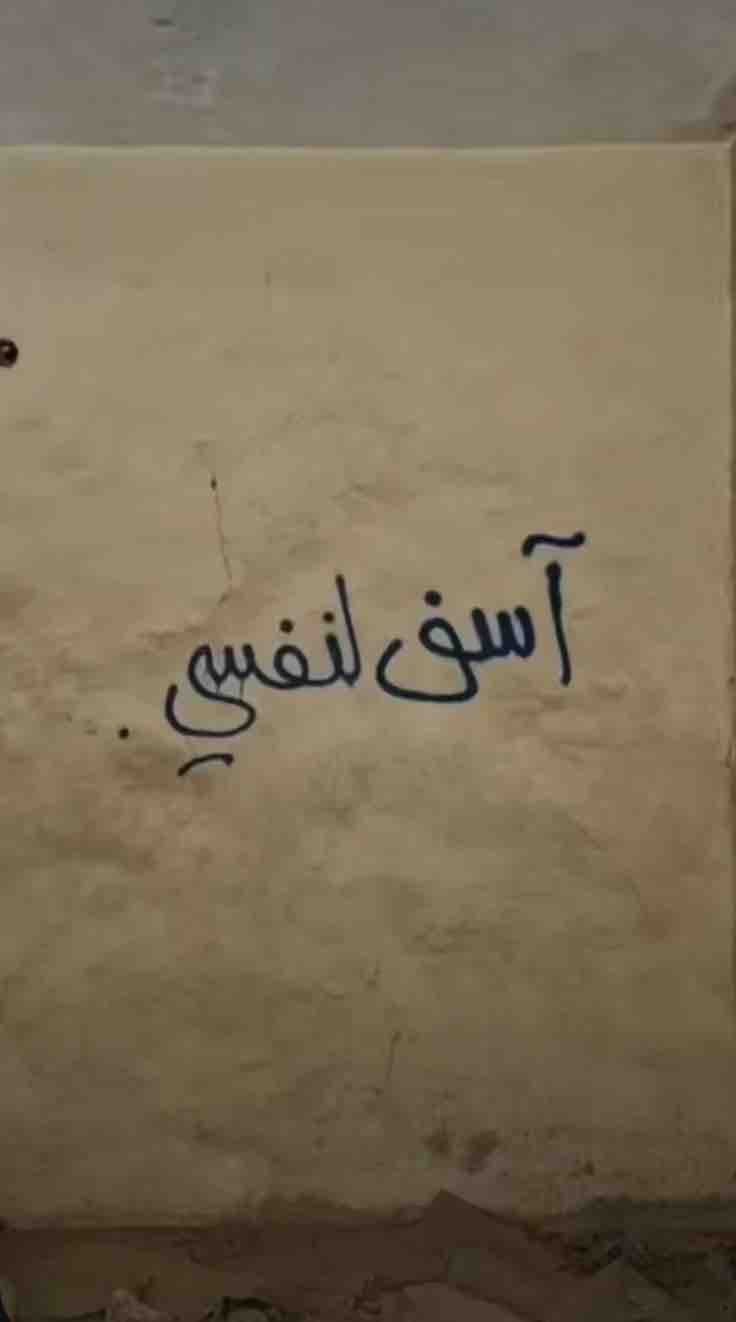 آسف لنفسي